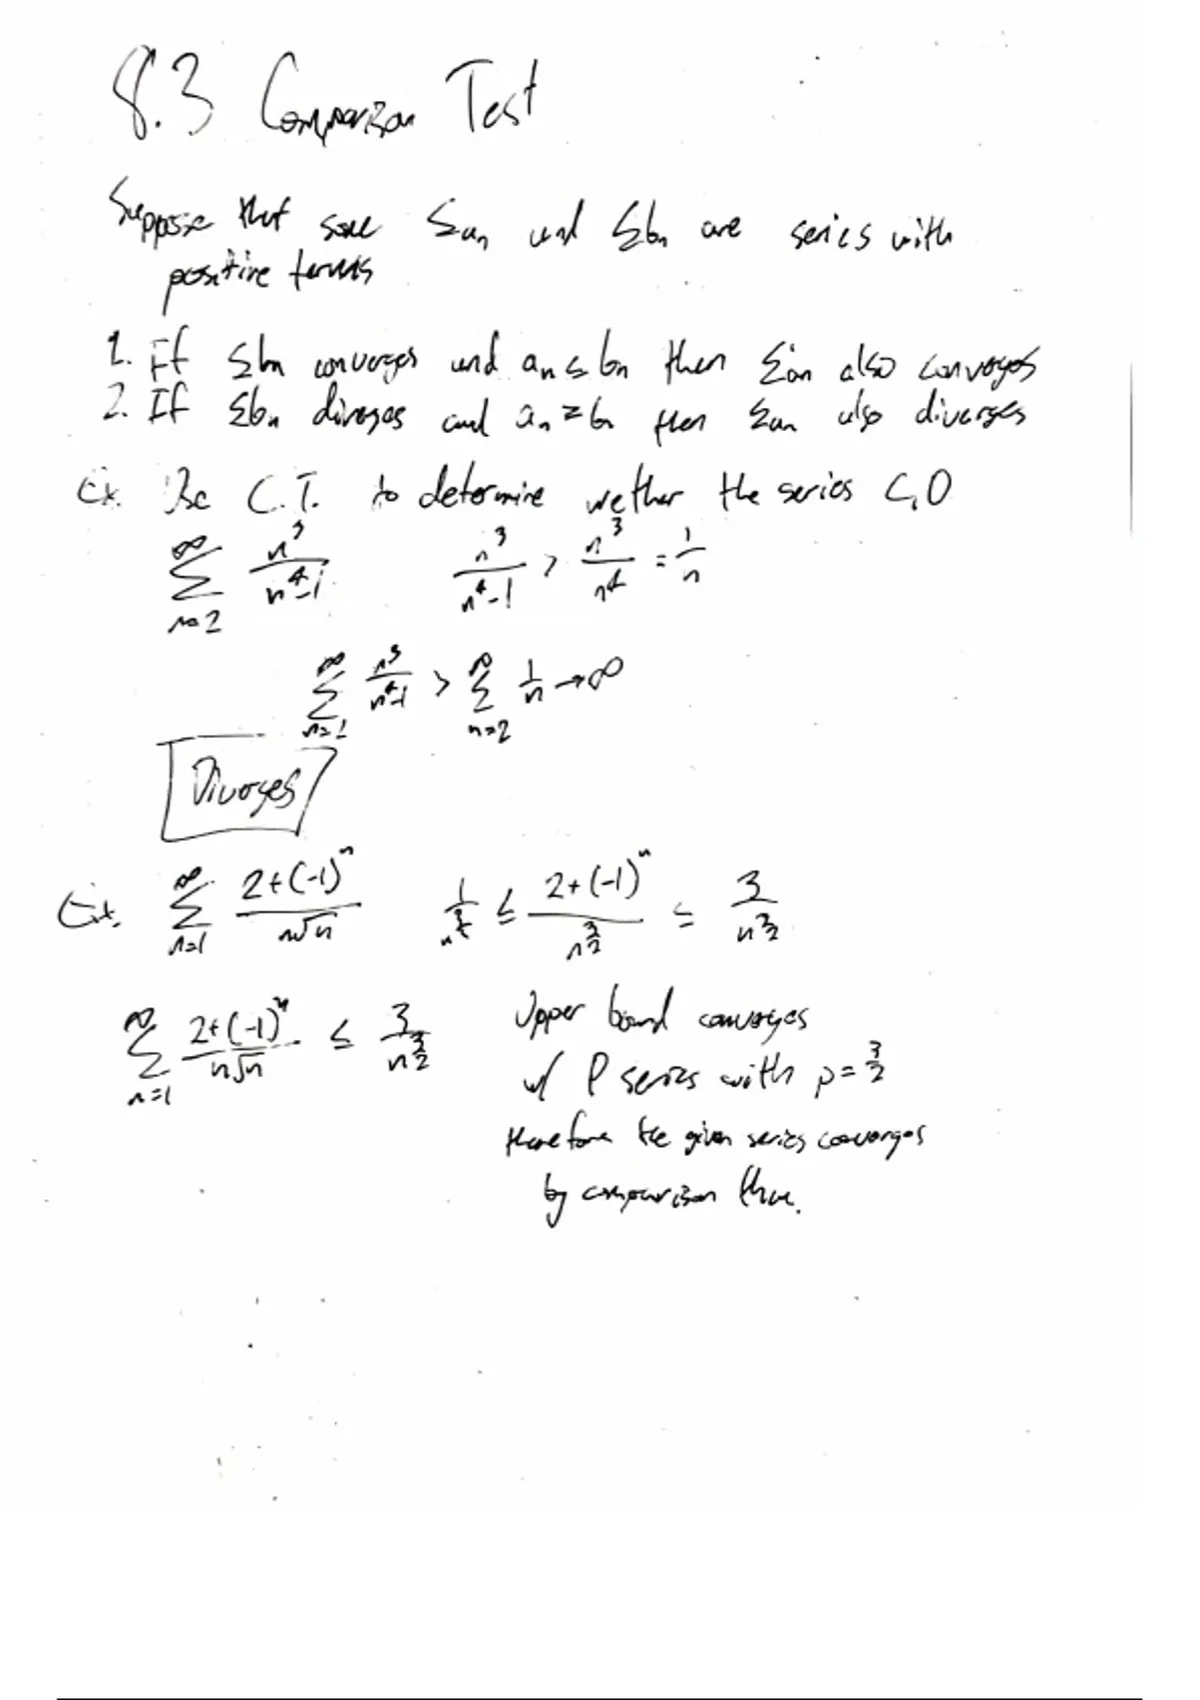 8.3 Comparison Test
Suppose that some Σan and Σbn are series with
positive terms
1. If Σbn converges and an ≤ bn then Σan also converges
2. If Σbn diverges and an ≥ bn then Σan also diverges
Ex. Use C.T. to determine wether the series C, D
∞ Σ n=2 n³/(n⁴-1) n³/(n⁴-1) > n³/n⁴ = 1/n
∞ Σ n=2 n³/(n⁴-1) > ∞ Σ n=2 1/n → ∞
Diverges
Ex. ∞ Σ n=1 (2+(-1)ⁿ)/(n√n) 1/n^(3/2) ≤ (2+(-1)ⁿ)/n^(3/2) ≤ 3/n^(3/2)
∞ Σ n=1 (2+(-1)ⁿ)/(n√n) ≤ 3/n^(3/2) Upper bound converges
w/ P series with p = 3/2
therefore the given series converges
by comparison thm.